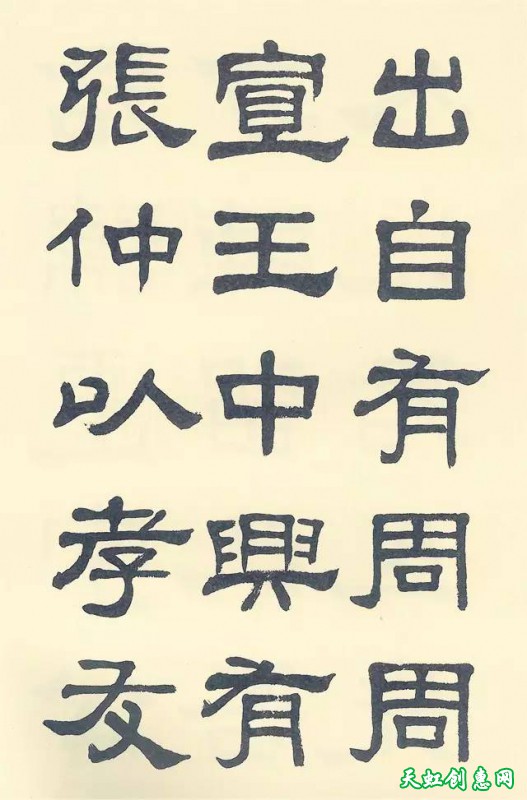 出自有周周
宣王中興有
張仲以孝友
天虹创惠网